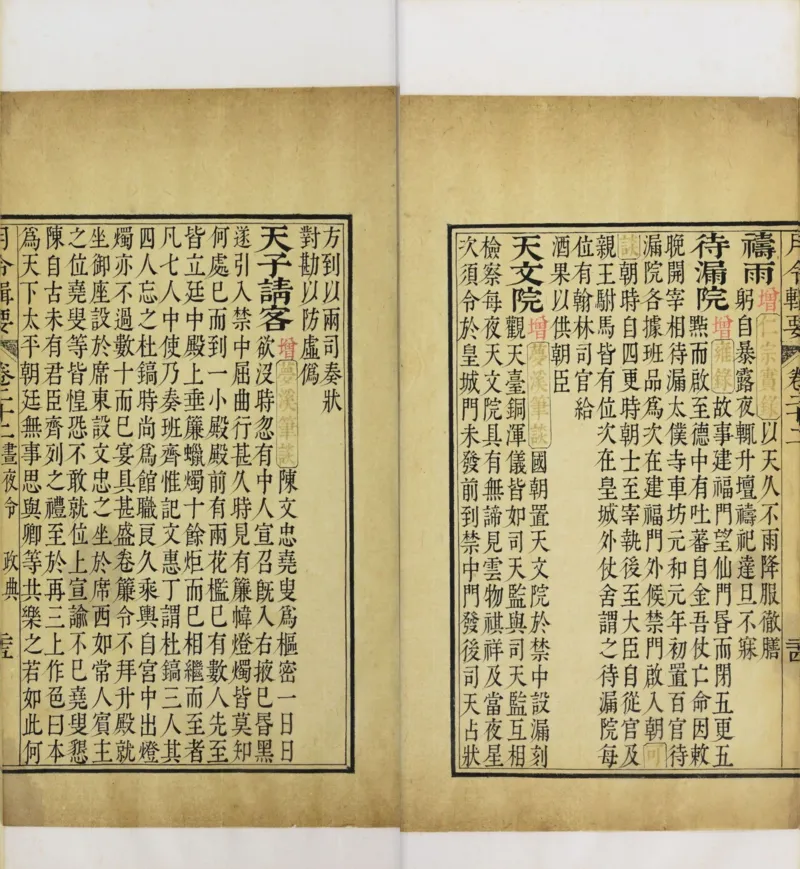 月令輯要 卷二十二
禱雨 增 仁宗實錄 以天久不雨降服徹膳
躬自暴露夜輒升壇禱祀達旦不寐
待漏院 增 雍錄 故事建福門望仙門昏而閉五更五
㸃而啟至德中有吐蕃自金吾仗亡命因敕
晚開宰相待漏太僕寺車坊元和元年初置百官待
漏院各據班品為次在建福門外候禁門啟入朝 可
談 朝時自四更時朝士至宰執後至大臣自從官及
親王駙馬皆有位次在皇城外仗舍謂之待漏院每
位有翰林司官給
酒果以供朝臣
天文院 增 夢溪筆談 國朝置天文院於禁中設漏刻
觀天臺銅渾儀皆如司天監與司天監互相
檢察每夜天文院具有無謫見雲物禖祥及當夜星
次須令於皇城門未發前到禁中門發後司天占狀
方到以兩司奏狀
對勘以防虛偽
天子請客 增 夢溪筆談 陳文忠堯叟為樞密一日日
欲沒時忽有中人宣召既入右掖已昏黑
遂引入禁中屈曲行甚久時見有簾幃燈燭皆莫知
何處已而到一小殿殿前有兩花檻已有數人先至
皆立廷中殿上垂簾蠟燭十餘炬而已相繼而至者
凡七人中使乃奏班齊惟記文惠丁謂杜鎬三人其
四人忘之杜鎬時尚為館職良久乘輿自宮中出燈
燭亦不過數十而已宴具甚盛卷簾令不拜升殿就
坐御座設於席東設文忠之坐於席西如常人賓主
之位堯叟等皆惶恐不敢就位上宣諭不已堯叟懇
陳自古未有君臣齊列之禮至於再三上作色曰本
為天下太平朝廷無事思與卿等共樂之若如此何
月令輯要 卷二十二 晝夜令 政典 二十五